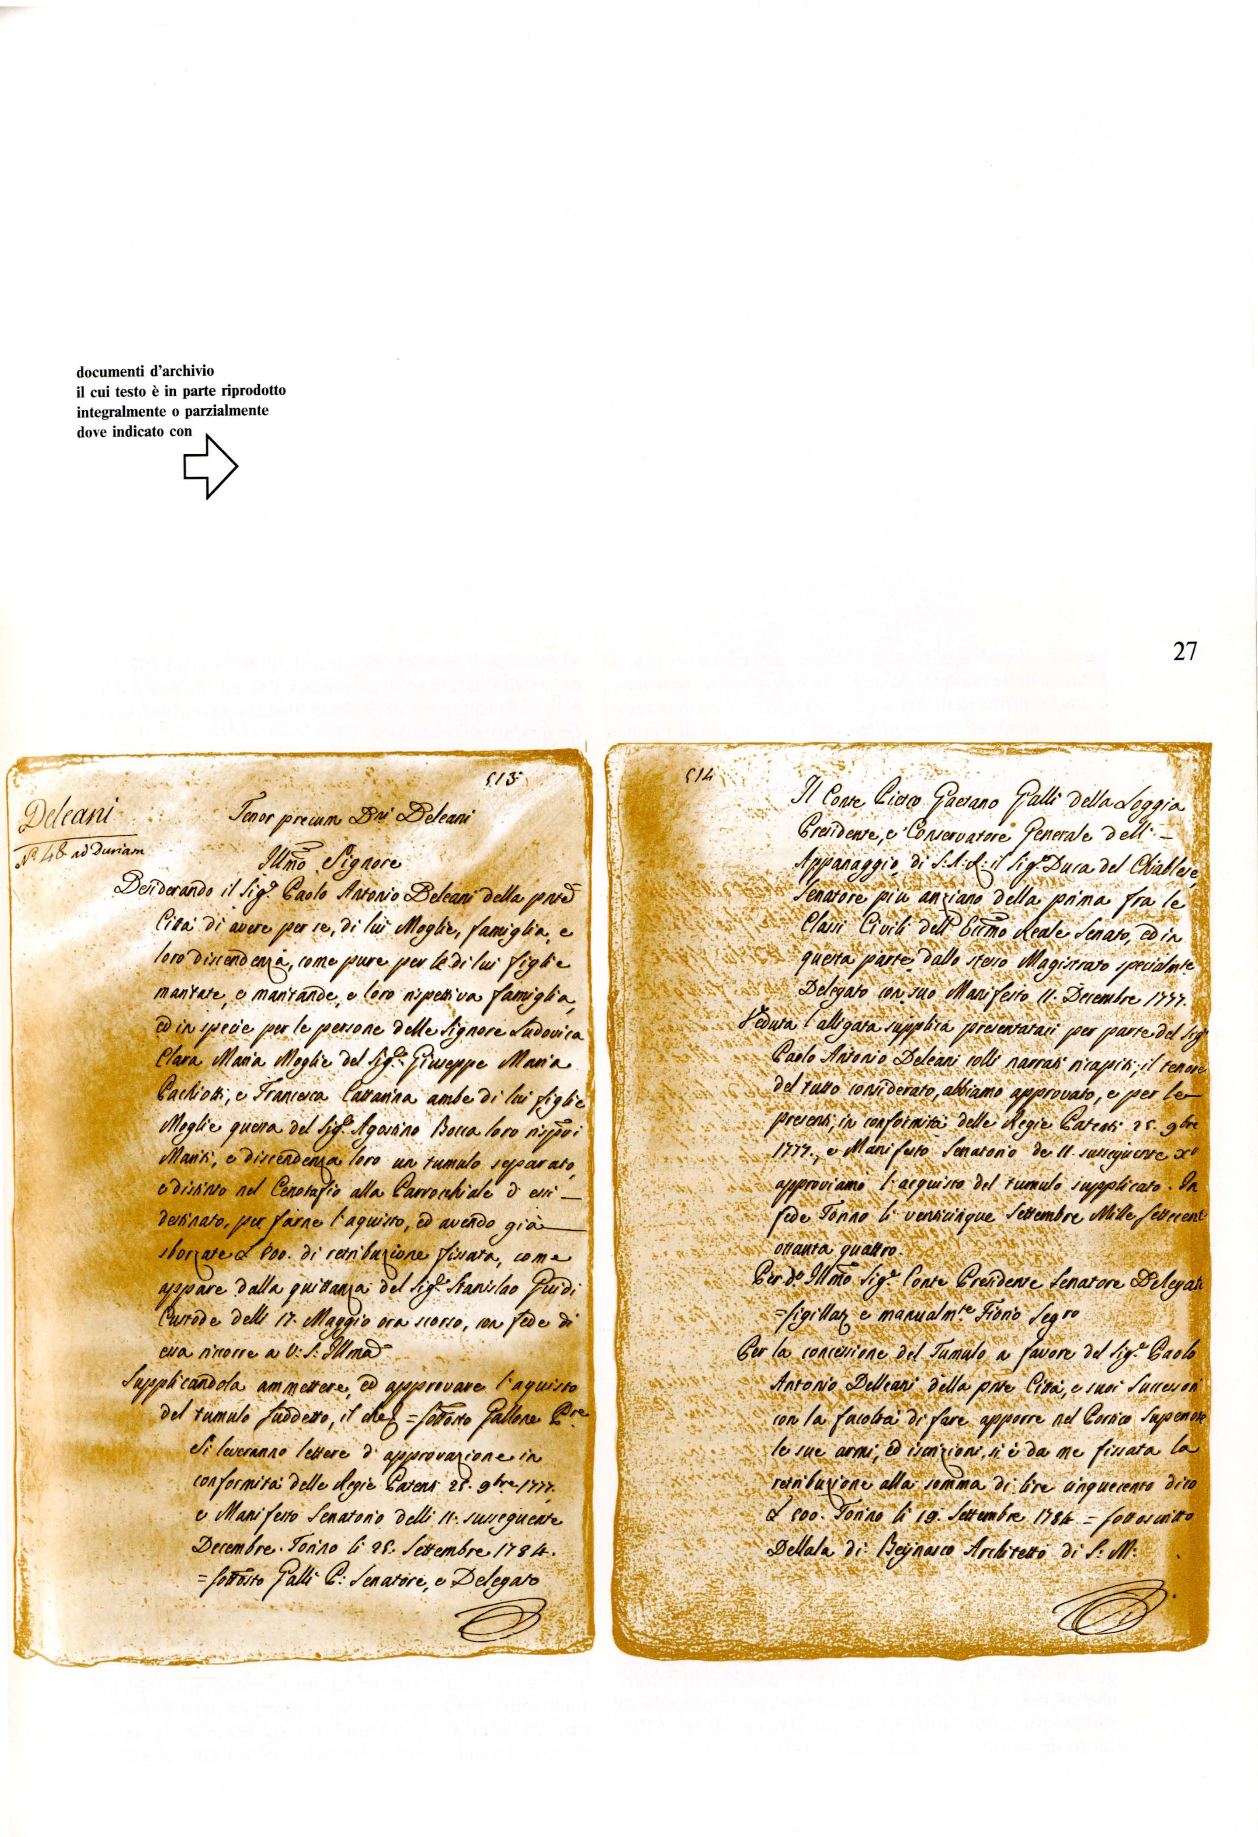 documenti d'archivio
il cui testo è in parte riprodotto
integralmente o parzialmente
dove indicato con
27
513
Deleani
N.° 48 ad Duriam
Tenor precum D.ni Deleani
Ill.mo Signore
Desiderando il Sig.r Paolo Antonio Deleani della pnte
Città di avere per se, di lui Moglie, famiglia, e
loro discendenza, come pure per le di lui figlie
maritate, e maritande, e loro rispettiva famiglia,
ed in specie per le persone delle Signore Ludovica
Clara Maria Moglie del Sig.r Giuseppe Maria
Pachiotti, e Francesca Cattarina ambe di lui figlie
Moglie questa del Sig.r Agostino Bocca loro rispvi
Mariti, e discendenza loro un tumulo separato,
e distinto nel Cenotafio alla Parrocchiale d'essi
destinato, per farne l'aquisto, ed avendo già
sborzate L 500. di retribuzione fissata, come
appare dalla quittanza del Sig.r Stanislao Giudi
Custode delli 17. Maggio ora scorso, con fede di
essa ricorre a V: S: Ill.ma
Supplicandola ammettere, ed approvare l'aquisto
del tumulo suddetto, il che = sottosto Gallone
Si leveranno lettere d'approvazione in
conformità delle Regie Patenti 25. 9bre 1777.
e Manifesto Senatorio delli 11. susseguente
Decembre. Torino li 25. Settembre 1784.
= sottosto Galli P: Senatore, e Delegato
514
Il Conte Pietro Gaetano Galli della Loggia
Presidente, e Conservatore Generale dell'
Appanaggio di S.A.R. il Sig.r Duca del Chiablese,
Senatore più anziano della prima fra le
Classi Civili dell'Ecc.mo Reale Senato, ed in
questa parte dallo stesso Magistrato specialmte
Delegato con suo Manifesto 11. Decembre 1777.
Veduta l'alligata supplica presentataci per parte del Sig.r
Paolo Antonio Deleani colli narrati ricapiti; il tenore
del tutto considerato, abbiamo approvato, e per le
presenti, in conformità delle Regie Patenti 25. 9bre
1777., e Manifesto Senatorio de 11. susseguente Xbre
approviamo l'acquisto del tumulo supplicato. In
fede Torino li venticinque Settembre Mille Settecent
ottanta quattro.
Per d.o Ill.mo Sig.r Conte Presidente Senatore Delegato
= Sigillat e manualmte Fiorio Segro
Per la concessione del Tumulo a favore del Sig.r Paolo
Antonio Delleani della pnte Città, e suoi Successori
con la facoltà di fare apporre nel Cornice Superiore
le sue armi, ed iscrizioni, si è da me fissata la
retribuzione alla somma di lire cinquecento dico
L 500. Torino li 19. Settembre 1784 = sottoscritto
Dellala di Beijnasco Architetto di S: M: